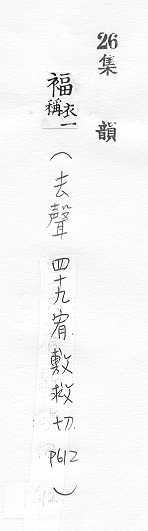 26集韻
福衣一稱(去聲四十九宥.敷救切.P612)